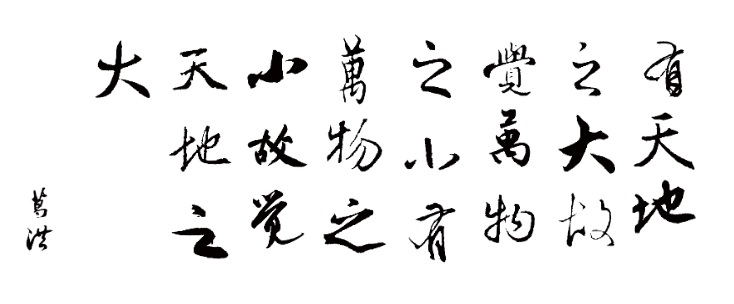 有天地
之大故
覺萬物
之小有
萬物之
小故觉
天地之
大
葛洪